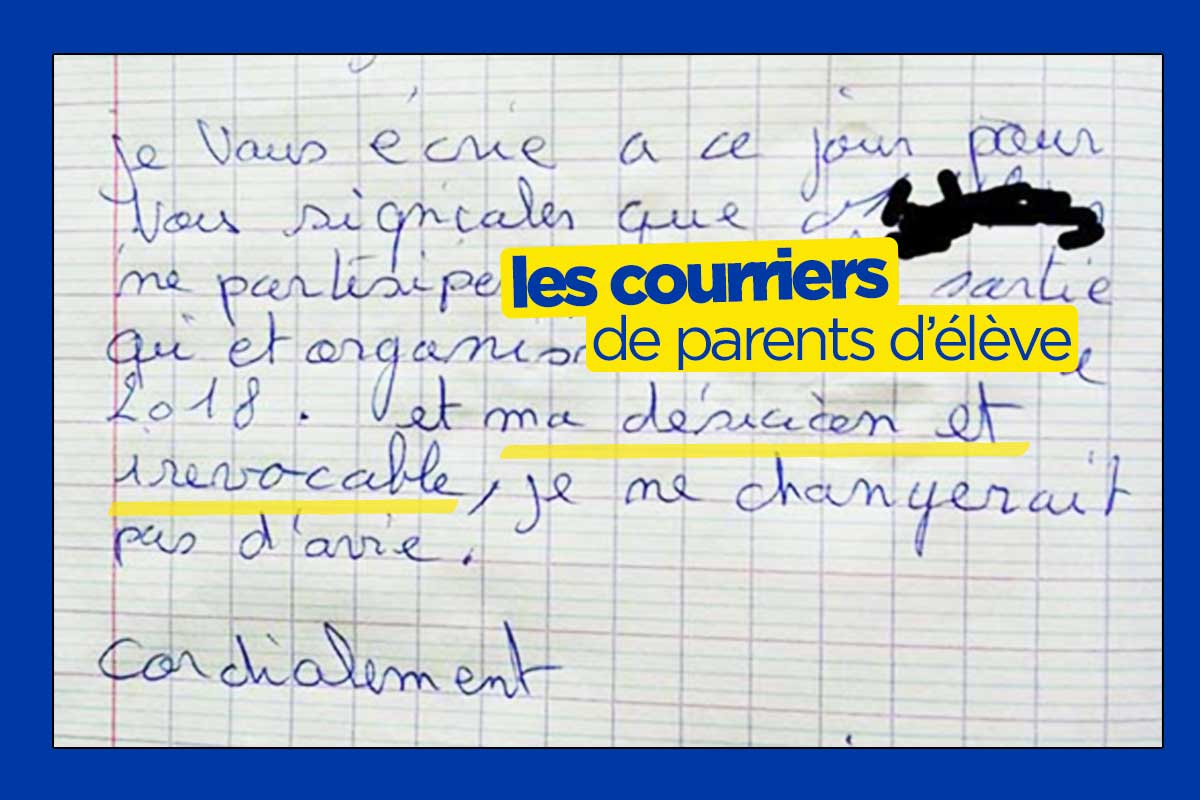 je vous écrie a ce jour pour
vous signicaler que
ne partisipe
sortie
les courriers
de parents d'élève
qui et organis
2018. et ma désicion et
irevocable, je ne changerait
pas d'avie.
Cordialement